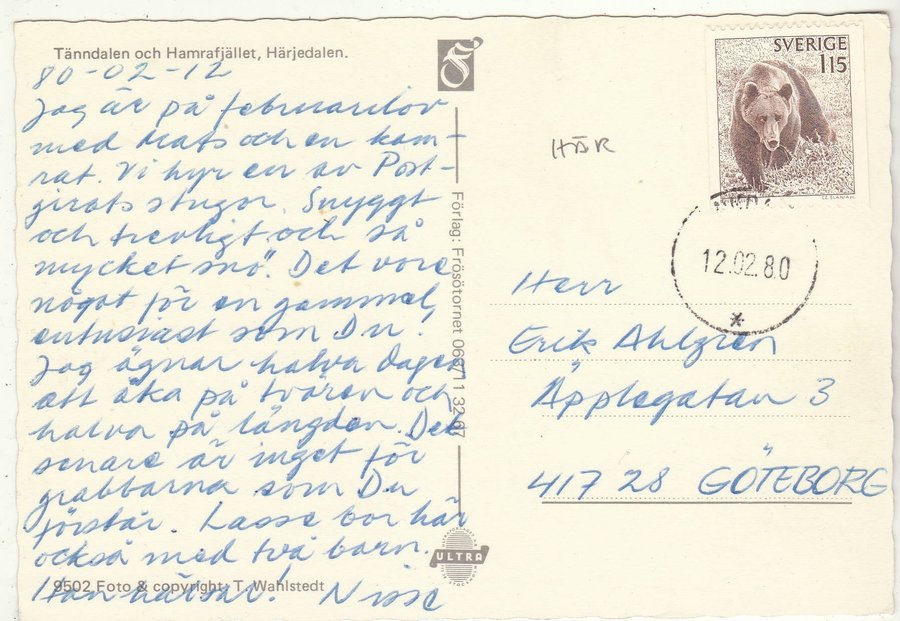 Tänndalen och Hamrafjället, Härjedalen.
80-02-12
Jag är på februarilov
med Mats och en kam-
rat. Vi hyr en av Post-
girots stugor. Snyggt
och trevligt och så
mycket snö. Det vore
något för en gammal
entusiast som Du!
Jag ägnar halva dagen
att åka på tvären och
halva på längden. Det
senare är inget för
grabbarna som Du
förstår. Lasse bor här
också med två barn.
Han hälsar! Nisse
9502 Foto & copyright: T. Wahlstedt
Förlag: Frösötornet 063/11 32 67
ULTRA
HÄR
SVERIGE
115
CZ.SLANIA
12.02.80
Herr
Erik Ahlgren
Äpplegatan 3
417 28 GÖTEBORG